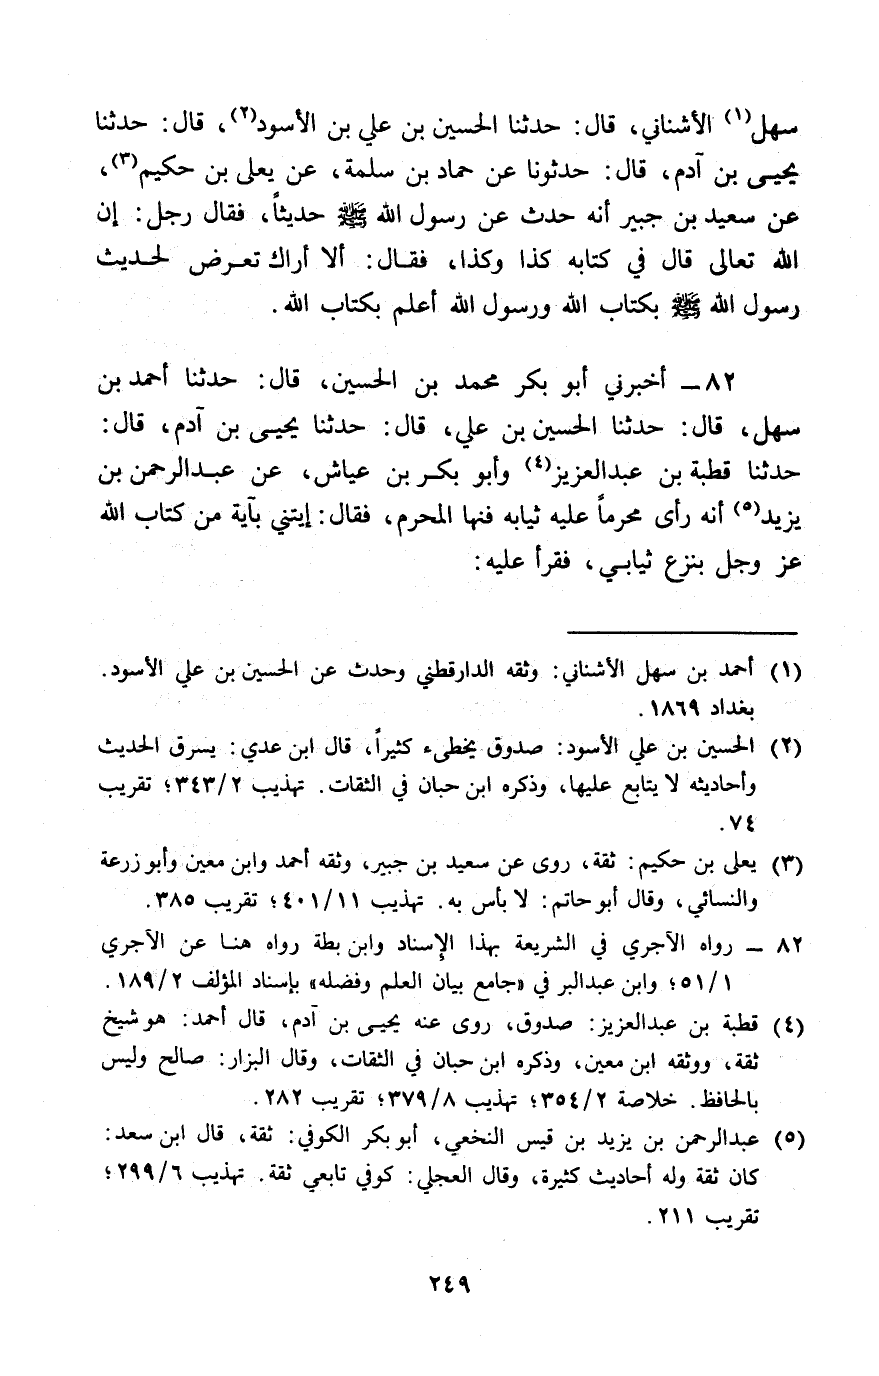 سهل(١) الأشناني، قال: حدثنا الحسين بن علي بن الأسود(٢)، قال: حدثنا
يحيى بن آدم، قال: حدثونا عن حماد بن سلمة، عن يعلى بن حكيم(٣)،
عن سعيد بن جبير أنه حدث عن رسول الله ﷺ حديثاً، فقال رجل: إن
الله تعالى قال في كتابه كذا وكذا، فقال: ألا أراك تعرض لحديث
رسول الله ﷺ بكتاب الله ورسول الله أعلم بكتاب الله.
٨٢ـ أخبرني أبو بكر محمد بن الحسين، قال: حدثنا أحمد بن
سهل، قال: حدثنا الحسين بن علي، قال: حدثنا يحيى بن آدم، قال:
حدثنا قطبة بن عبدالعزيز(٤) وأبو بكر بن عياش، عن عبدالرحمن بن
يزيد(٥) أنه رأى محرماً عليه ثيابه فنها المحرم، فقال: إيتني بآية من كتاب الله
عز وجل بنزع ثيابي، فقرأ عليه:
(١) أحمد بن سهل الأشناني: وثقه الدارقطني وحدث عن الحسين بن علي الأسود.
بغداد ١٨٦٩.
(٢) الحسين بن علي الأسود: صدوق يخطىء كثيراً، قال ابن عدي: يسرق الحديث
وأحاديثه لا يتابع عليها، وذكره ابن حبان في الثقات. تهذيب ٣٤٣/٢؛ تقريب
٧٤.
(٣) يعلى بن حكيم: ثقة، روى عن سعيد بن جبير، وثقه أحمد وابن معين وأبو زرعة
والنسائي، وقال أبو حاتم: لا بأس به. تهذيب ٤٠١/١١؛ تقريب ٣٨٥.
٨٢ ـ رواه الآجري في الشريعة بهذا الإسناد وابن بطة رواه هنا عن الآجري
٥١/١؛ وابن عبدالبر في «جامع بيان العلم وفضله» بإسناد المؤلف ١٨٩/٢.
(٤) قطبة بن عبدالعزيز: صدوق، روى عنه يحيى بن آدم، قال أحمد: هو شيخ
ثقة، ووثقه ابن معين، وذكره ابن حبان في الثقات، وقال البزار: صالح وليس
بالحافظ. خلاصة ٣٥٤/٢؛ تهذيب ٣٧٩/٨؛ تقريب ٢٨٢.
(٥) عبدالرحمن بن يزيد بن قيس النخعي، أبو بكر الكوفي: ثقة، قال ابن سعد:
كان ثقة وله أحاديث كثيرة، وقال العجلي: كوفي تابعي ثقة. تهذيب ٢٩٩/٦؛
تقريب ٢١١.
٢٤٩